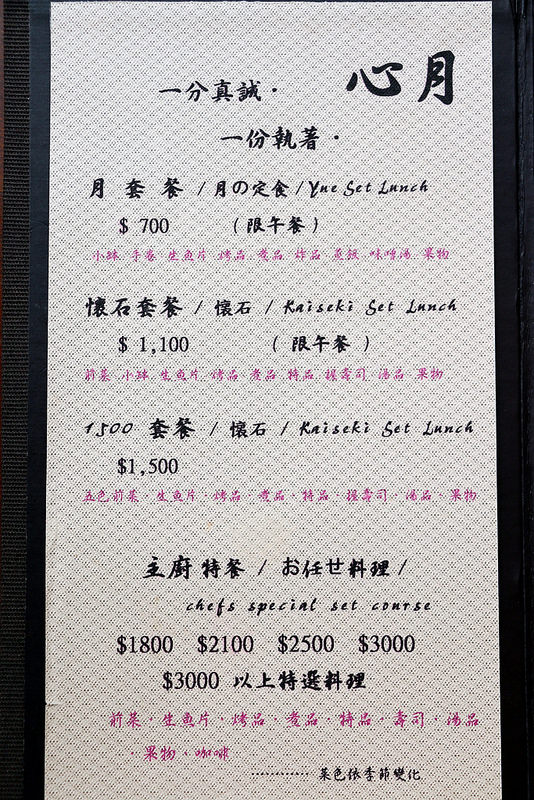 心月
一分真誠·
一份執著·
月 套 餐 / 月の定食 / Yue Set Lunch
$ 700 ( 限午餐 )
小缽 手卷 生魚片 烤品 煮品 炸品 蒸飯 味噌湯 果物
懷石套餐 / 懷石 / Kaiseki Set Lunch
$ 1,100 ( 限午餐 )
前菜 小缽 生魚片 烤品 煮品 特品 握壽司 湯品 果物
1500 套餐 / 懷石 / Kaiseki Set Lunch
$1,500
五色前菜·生魚片·烤品·煮品·特品·握壽司·湯品·果物
主廚特餐 / お任せ料理 /
chefs special set course
$1800 $2100 $2500 $3000
$3000 以上特選料理
前菜·生魚片·烤品·煮品·特品·壽司·湯品
·果物·咖啡
············菜色依季節變化